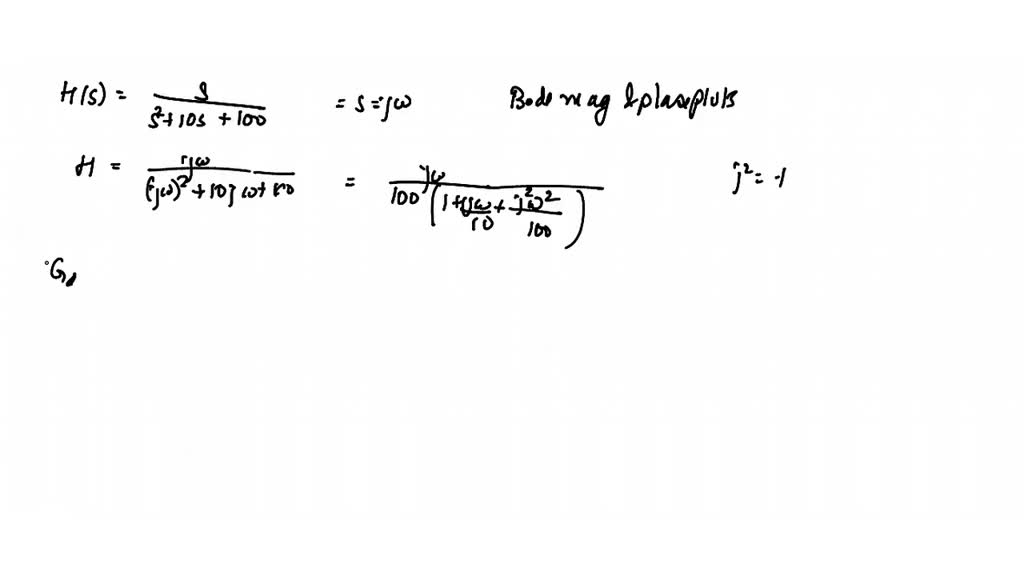 H(s) = s / s²+10s+100 = s=jω Bode mag & phase plots
H = jω / (jω)²+10jω+100 = jω / 100(1+jω/10+j²ω²/100) j²=-1